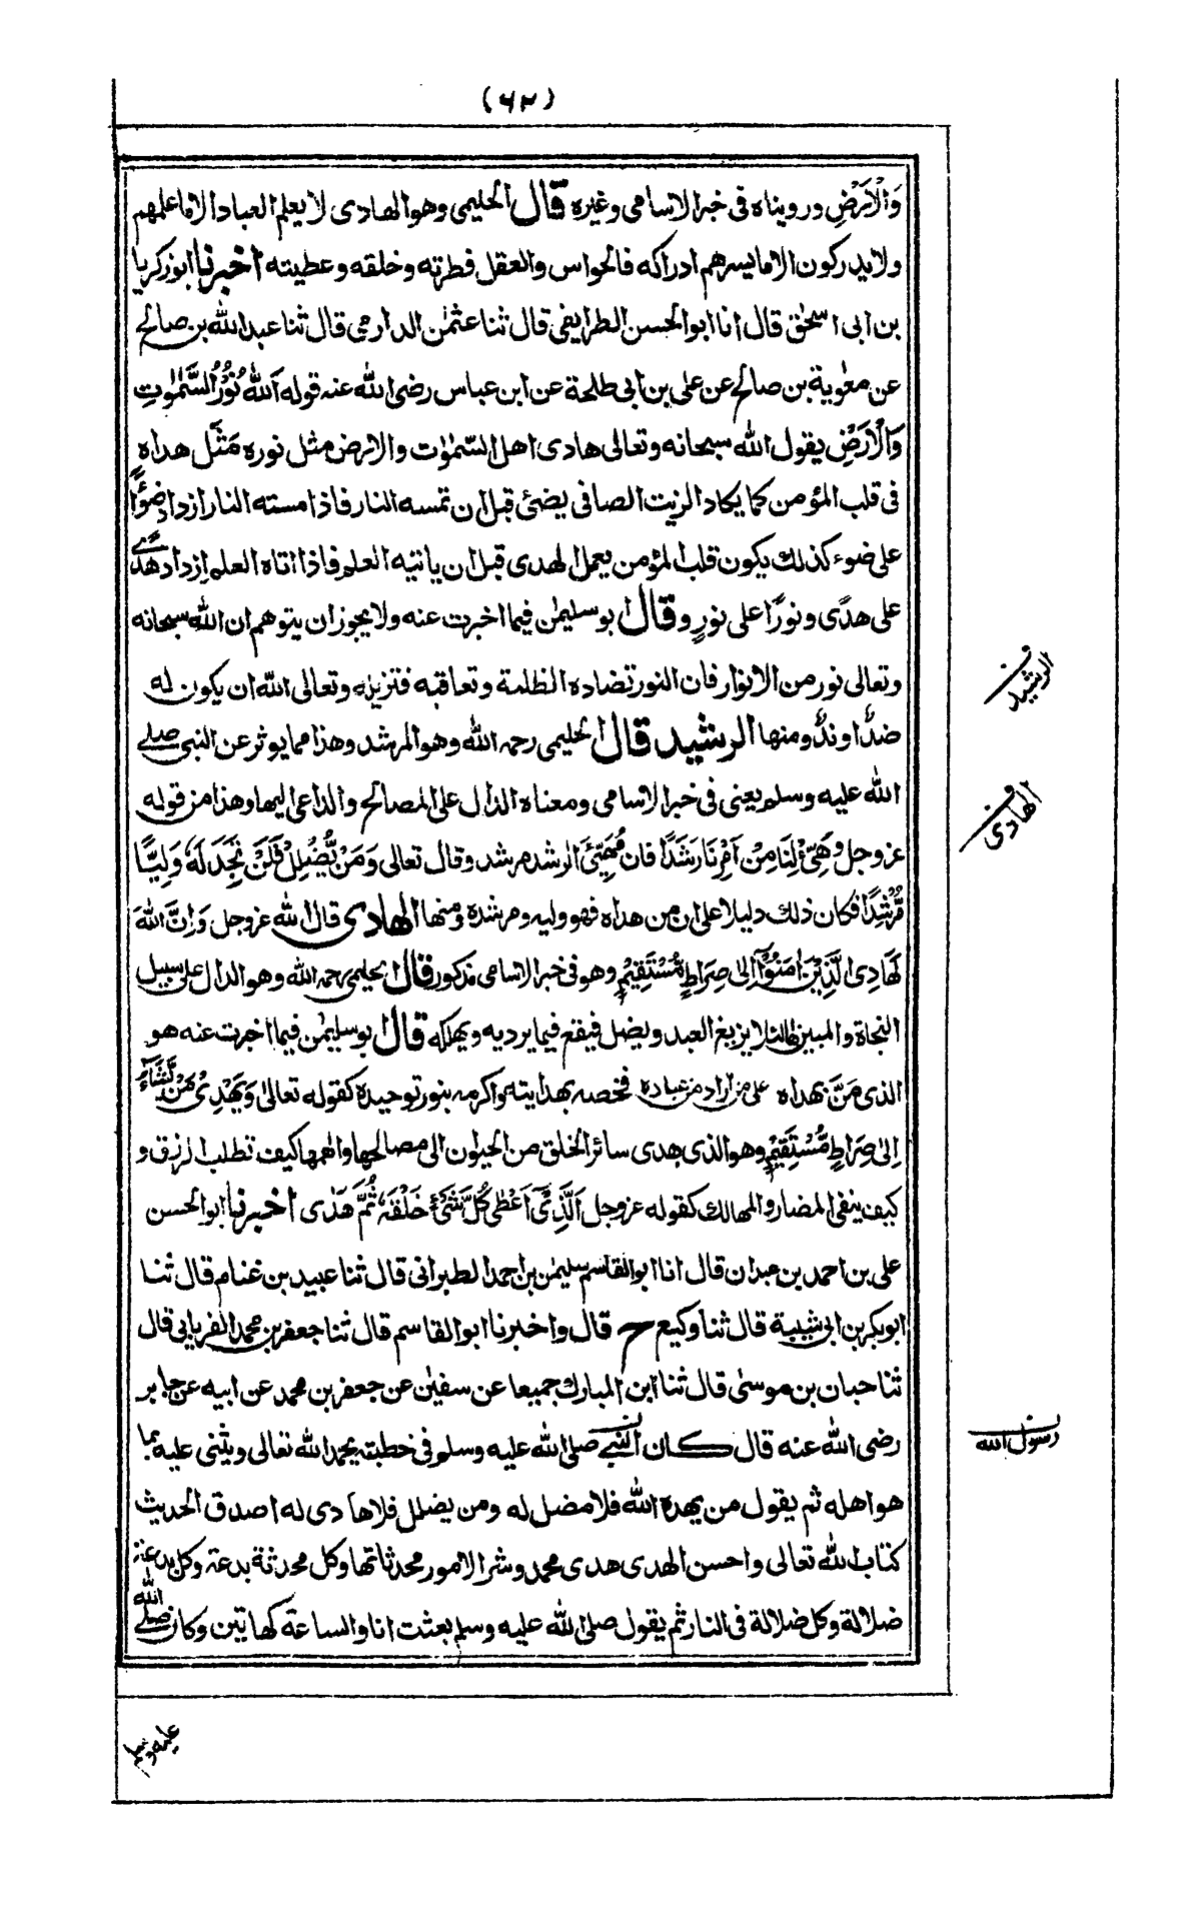 (٦٢)
وَالْاَرْضِ ورويناه فى خبر الاسامى وغيره قال الحليمى وهو الهادى لا يعلم العباد الا ما علمهم
ولا يدركون الا ما يسر هم ادراكه فالحواس والعقل فطرته وخلقه وعطيته اخبرنا ابو زكريا
بن ابى اسحٰق قال انا ابو الحسن الطرايفى قال ثنا عثمٰن الدارمى قال ثنا عبد الله بن صالح
عن معٰوية بن صالح عن على بن ابى طلحة عن ابن عباس رضى الله عنه قوله اَللهُ نُوْرُ السَّمٰوٰتِ
وَالْاَرْضِ يقول الله سبحانه وتعالى هادى اهل السّمٰوٰت والارض مثل نوره مَثَل هداه
فى قلب المؤمن كما يكاد الزيت الصافى يضئ قبل ان تمسه النار فاذا مسته النار ازداد ضوْءًا
على ضوء كذلك يكون قلب المؤمن يعمل الهدى قبل ان ياتيه العلم فاذا اتاه العلم ازداد هدًى
على هدًى ونورًا على نورٍ وقال ابو سليمٰن فيما اخبرت عنه ولا يجوز ان يتوهم ان الله سبحانه
وتعالى نور من الانوار فان النور تضاده الظلمة وتعاقبه فتزيله وتعالى الله ان يكون له
ضدٌّ او ندٌّ ومنها الرشيد قال الحليمى رحمه الله وهو المرشد وهذا مما يوثر عن النبى صلے
الله عليه وسلم يعنى فى خبر الاسامى ومعناه الدال على المصالح والداعى اليها وهذا من قوله
عز وجل وَهَيِّئْ لَنَا مِنْ اَمْرِنَا رَشَدًا فان مُهَيِّئَ الرشد مرشد وقال تعالى وَمَنْ يُّضْلِلْ فَلَنْ تَجِدَ لَهٗ وَلِيًّا
مُّرْشِدًا فكان ذلك دليلا على ان من هداه فهو وليه ومرشده ومنها الهادى قال الله عز وجل وَاِنَّ اللهَ
لَهَادِى الَّذِيْنَ اٰمَنُوْٓا اِلٰى صِرَاطٍ مُّسْتَقِيْمٍ وهو فى خبر الاسامى مذكور قال الحليمى رحمه الله وهو الدال على سبيل
النجاة والمبين لها لئلا يزيغ العبد ويضل فيقع فيما يرديه ويهلكه قال ابو سليمٰن فيما اخبرت عنه هو
الذى مَنَّ بهداه على من اراد من عباده فخصه بهدايته واكرمه بنور توحيده كقوله تعالى وَيَهْدِىْ مَنْ يَّشَآءُ
اِلٰى صِرَاطٍ مُّسْتَقِيْمٍ وهو الذى هدى سائر الخلق من الحيوان الى مصالحها والهمها كيف تطلب الرزق و
كيف ينفى المضار والمهالك كقوله عز وجل اَلَّذِىْٓ اَعْطٰى كُلَّ شَىْءٍ خَلْقَهٗ ثُمَّ هَدٰى اخبرنا ابو الحسن
على بن احمد بن عبدان قال انا ابو القاسم سليمٰن بن احمد الطبرانى قال ثنا عبيد بن غنام قال ثنا
ابو بكر بن ابى شيبة قال ثنا وكيع ح قال واخبرنا ابو القاسم قال ثنا جعفر بن محمد الفريابى قال
ثنا حبان بن موسٰى قال ثنا ابن المبارك جميعا عن سفيٰن عن جعفر بن محمد عن ابيه عن جابر
رضى الله عنه قال كان النبے صلى الله عليه وسلم فى خطبته يحمد الله تعالى ويثنى عليه بما
هو اهله ثم يقول من يهده الله فلا مضل له ومن يضلل فلا هادى له اصدق الحديث
كتاب الله تعالى واحسن الهدى هدى محمد وشر الامور محدثاتها وكل محدثة بدعة وكل بدعة
ضلالة وكل ضلالة فى النار ثم يقول صلى الله عليه وسلم بعثت انا والساعة كهاتين وكان صلے الله
الرشيد
الهادى
رسول الله
عليه وسلم